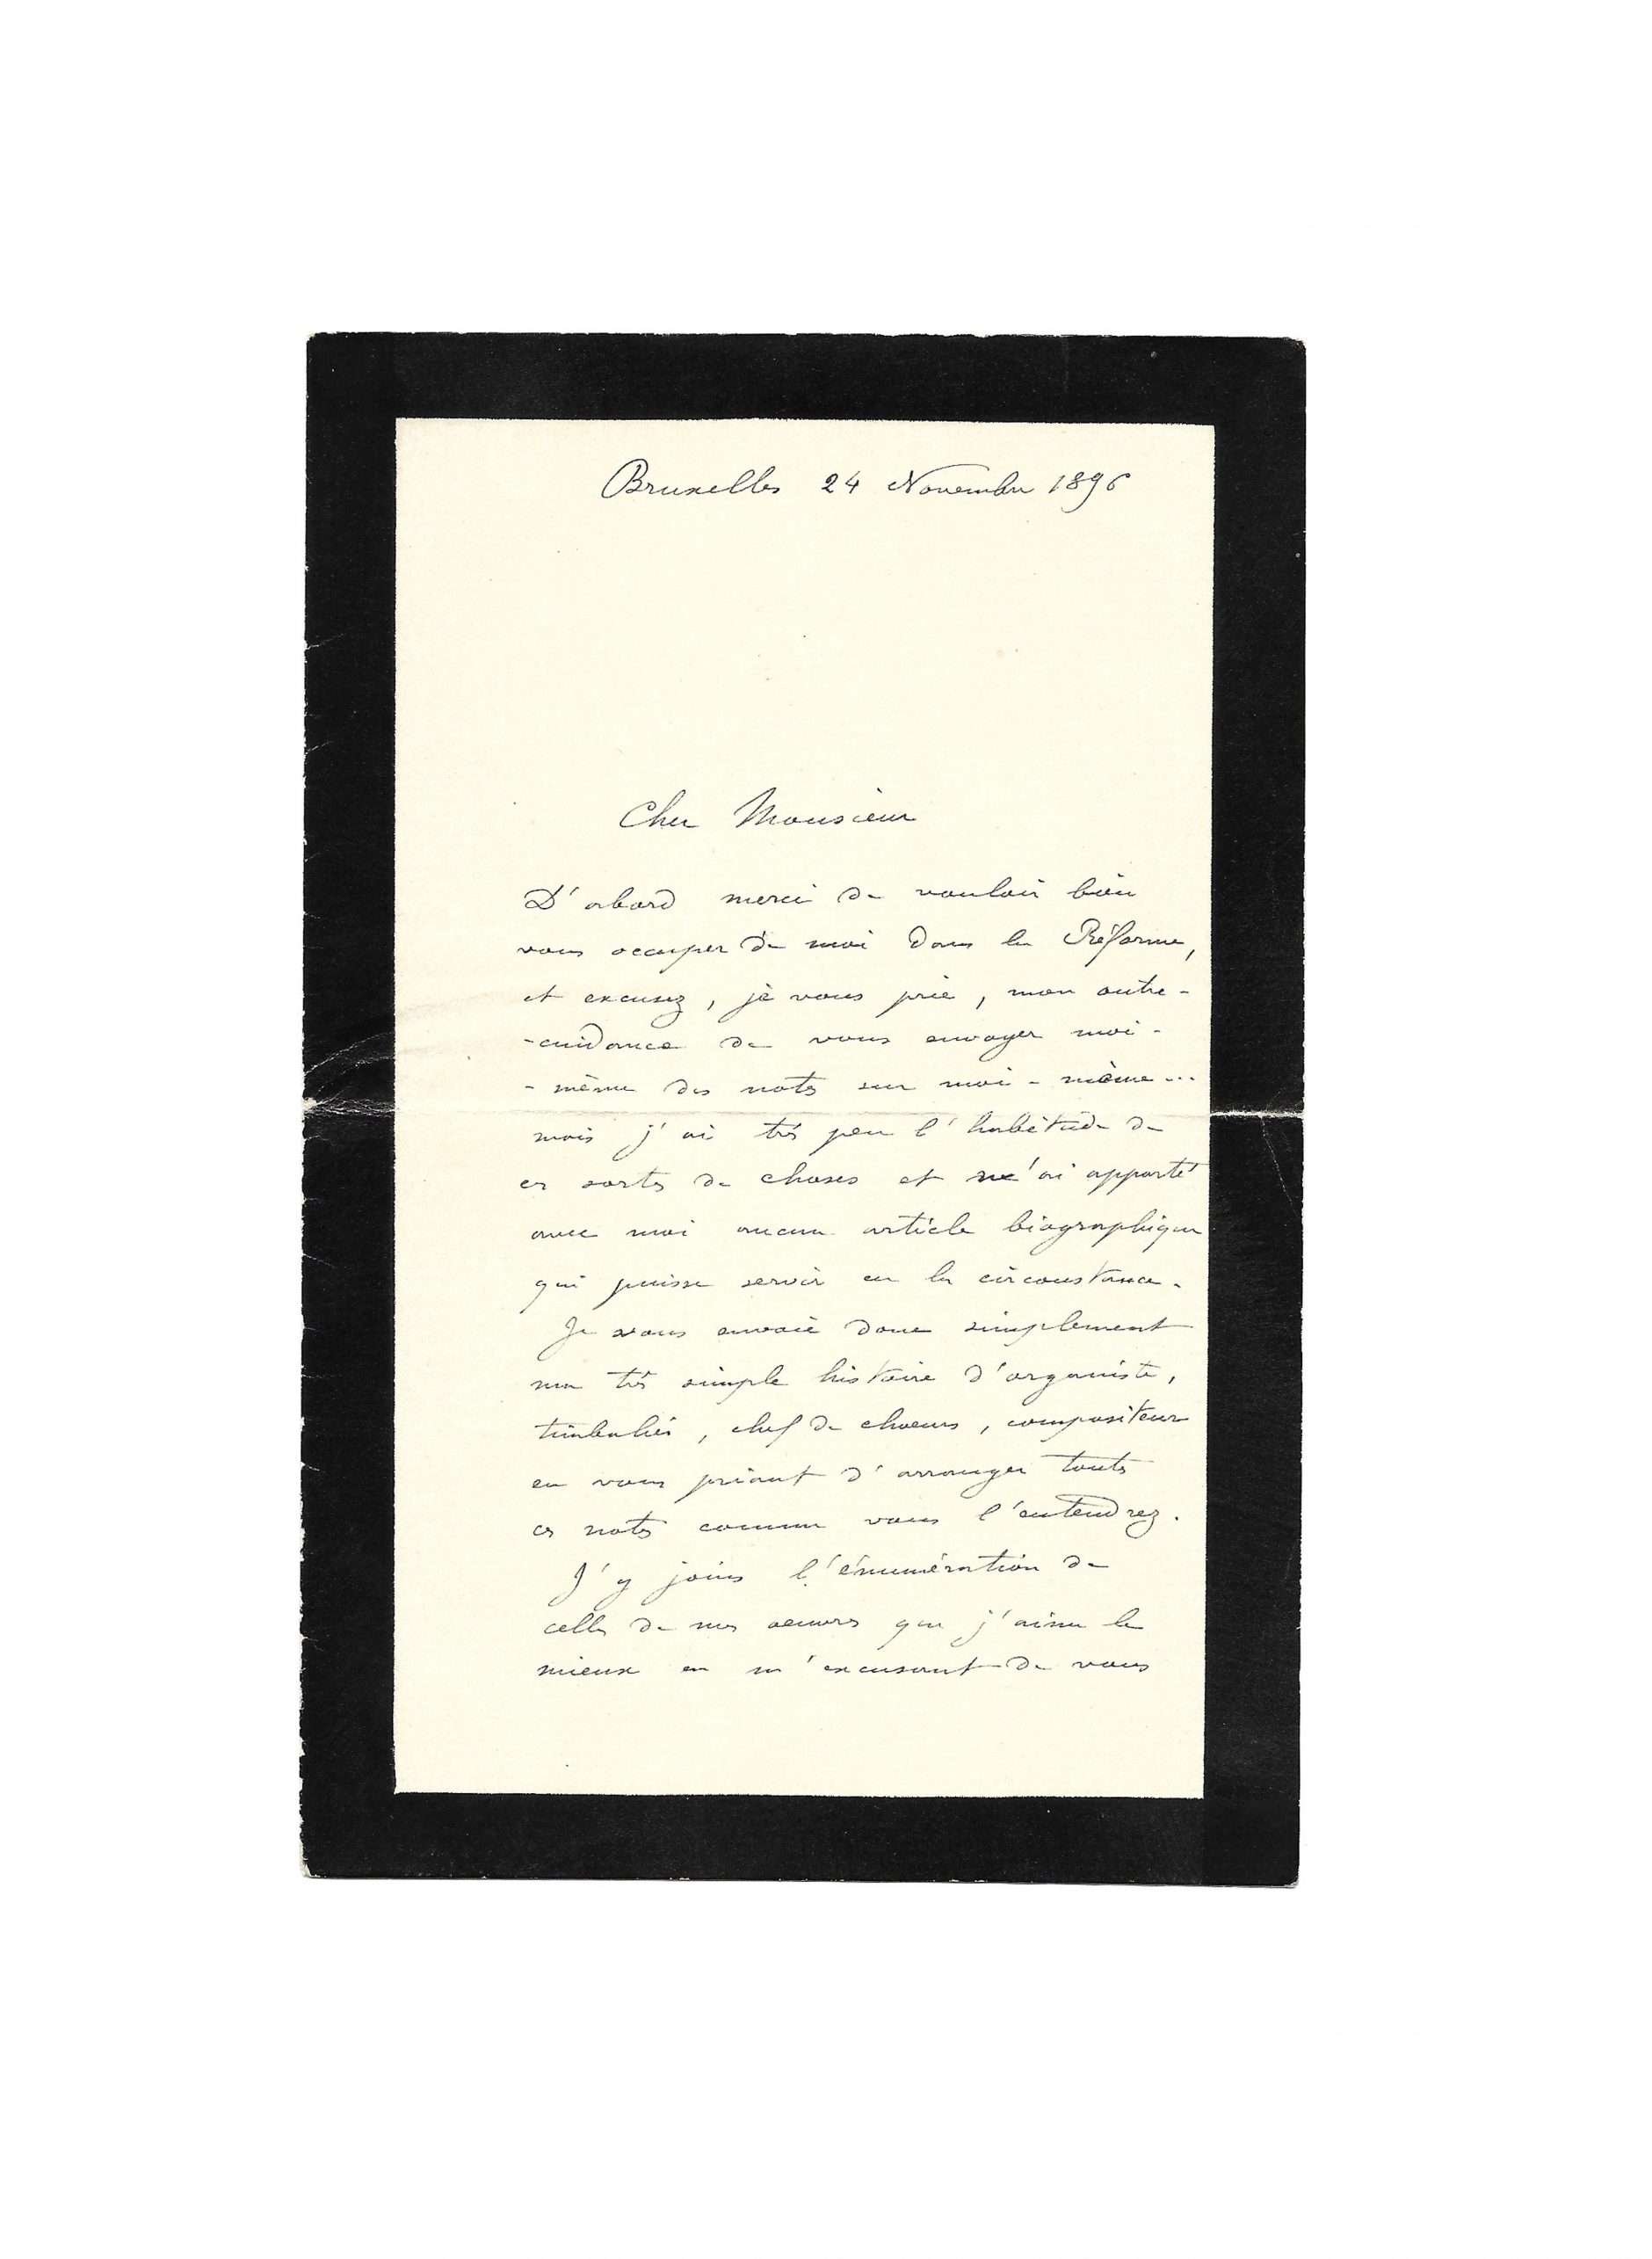 Bruxelles 24 Novembre 1896
Cher Monsieur
D'abord merci de vouloir bien
vous occuper de moi dans la Réforme,
et excusez, je vous prie, mon outre-
-cuidance de vous envoyer moi-
-même des notes sur moi-même...
mais j'ai très peu l'habitude de
ces sortes de choses et n'ai apporté
avec moi aucun article biographique
qui puisse servir en la circonstance.
Je vous envoie donc simplement
ma très simple histoire d'organiste,
timbalier, chef de choeurs, compositeur
en vous priant d'arranger toutes
ces notes comme vous l'entendrez.
J'y joins l'énumération de
celles de mes oeuvres que j'aime le
mieux en m'excusant de vous